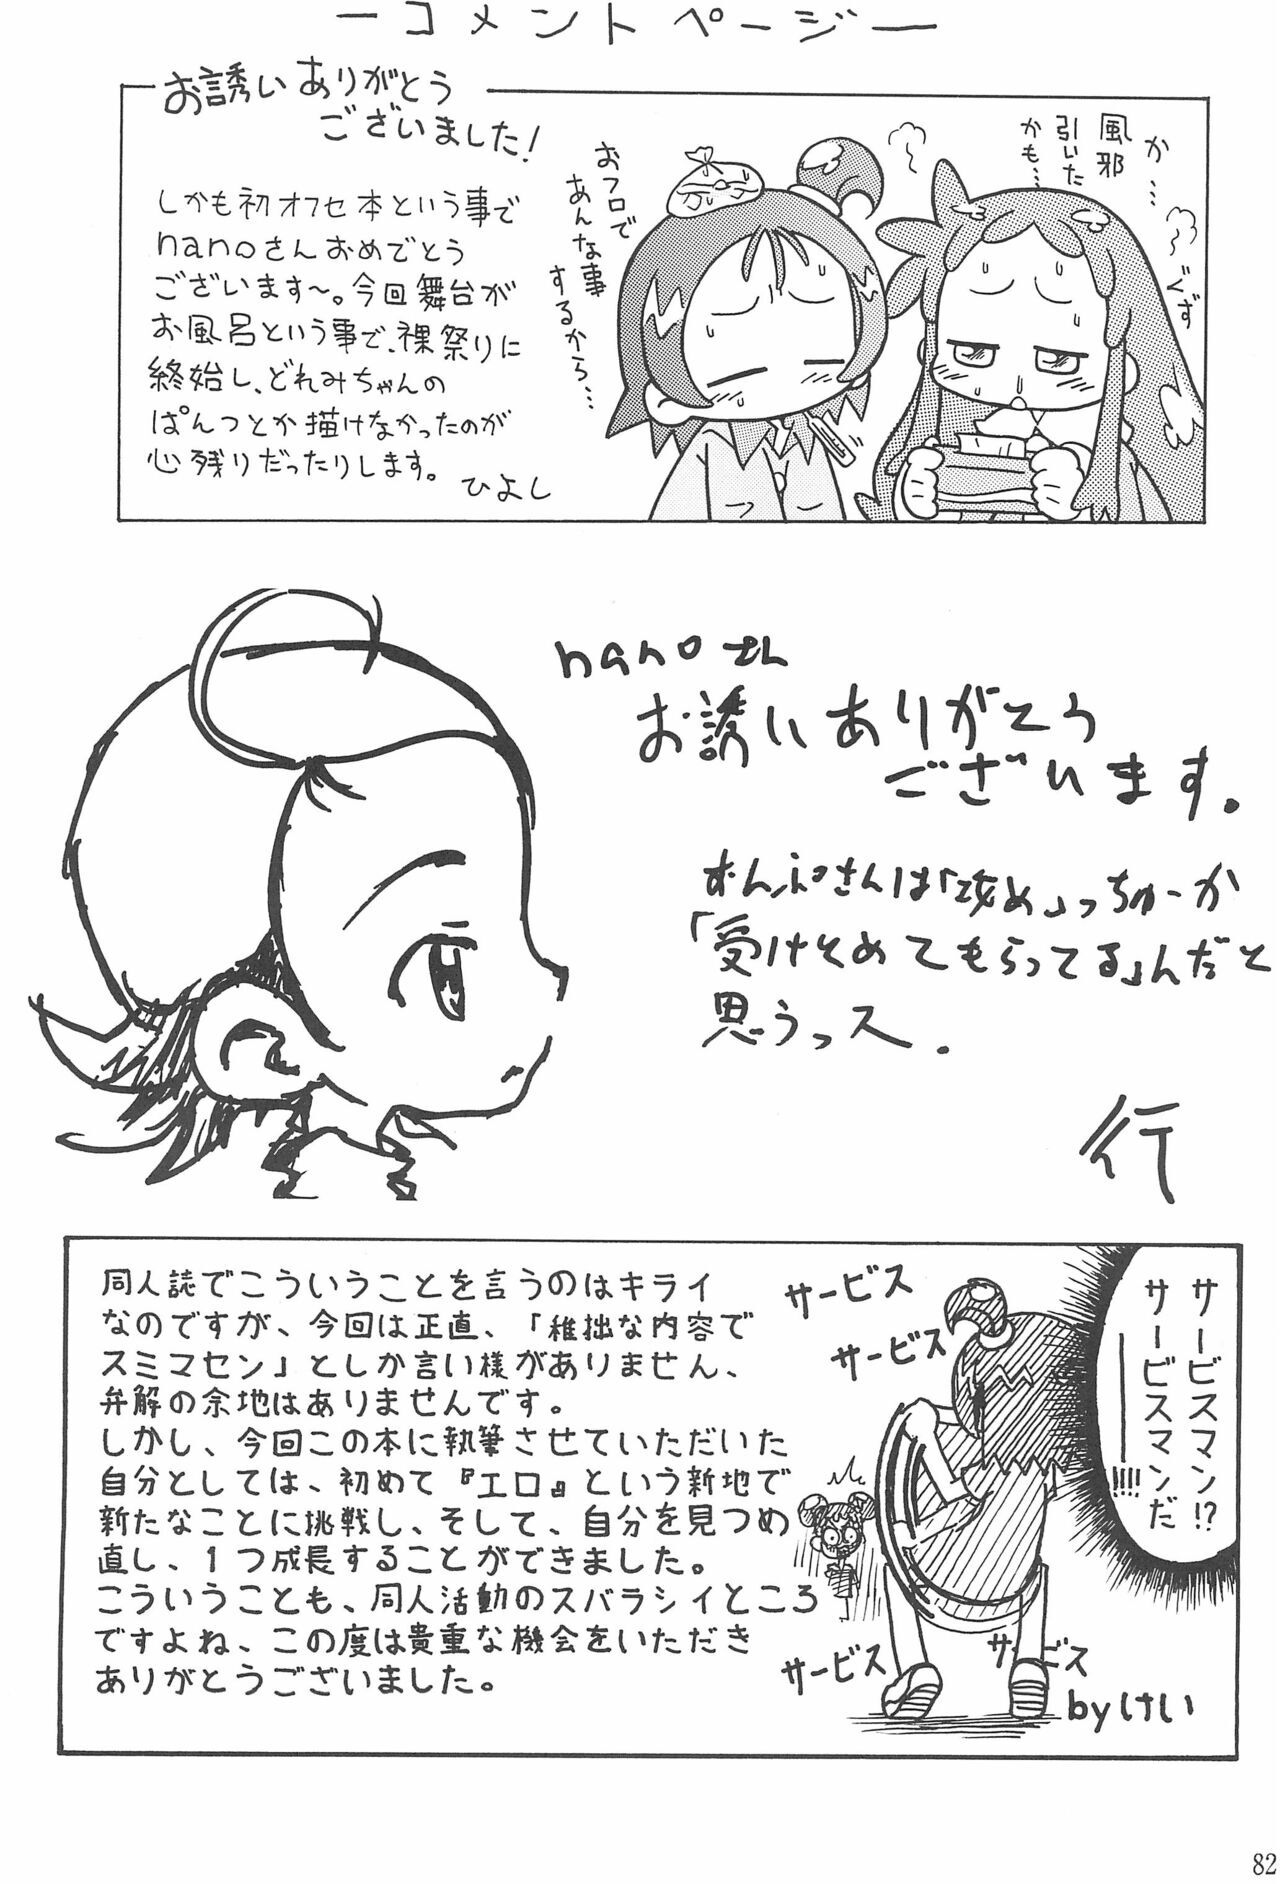 ーコメントページー
お誘いありがとう
ございました!
しかも初オフセ本という事で
nanoさんおめでとう
ございます〜。今回舞台が
お風呂という事で、裸祭りに
終始し、どれみちゃんの
ぱんつとか描けなかったのが
心残りだったりします。
ひよし
か…
風邪
引いた
かも…
ぐず
おフロで
あんな事
するから…
nanoさん
お誘いありがとう
ございます。
おんぷさんは「攻め」っちゅーか
「受けそめてもらってる」んだと
思うっス.
行
同人誌でこういうことを言うのはキライ
なのですが、今回は正直、「稚拙な内容で
スミマセン」としか言い様がありません、
弁解の余地はありませんです。
しかし、今回この本に執筆させていただいた
自分としては、初めて『エロ』という新地で
新たなことに挑戦し、そして、自分を見つめ
直し、1つ成長することができました。
こういうことも、同人活動のスバラシイところ
ですよね、この度は貴重な機会をいただき
ありがとうございました。
サービスマン!?
サービスマンだ
――!!!!
サービス
サービス
サービス
サービス
byけい
82